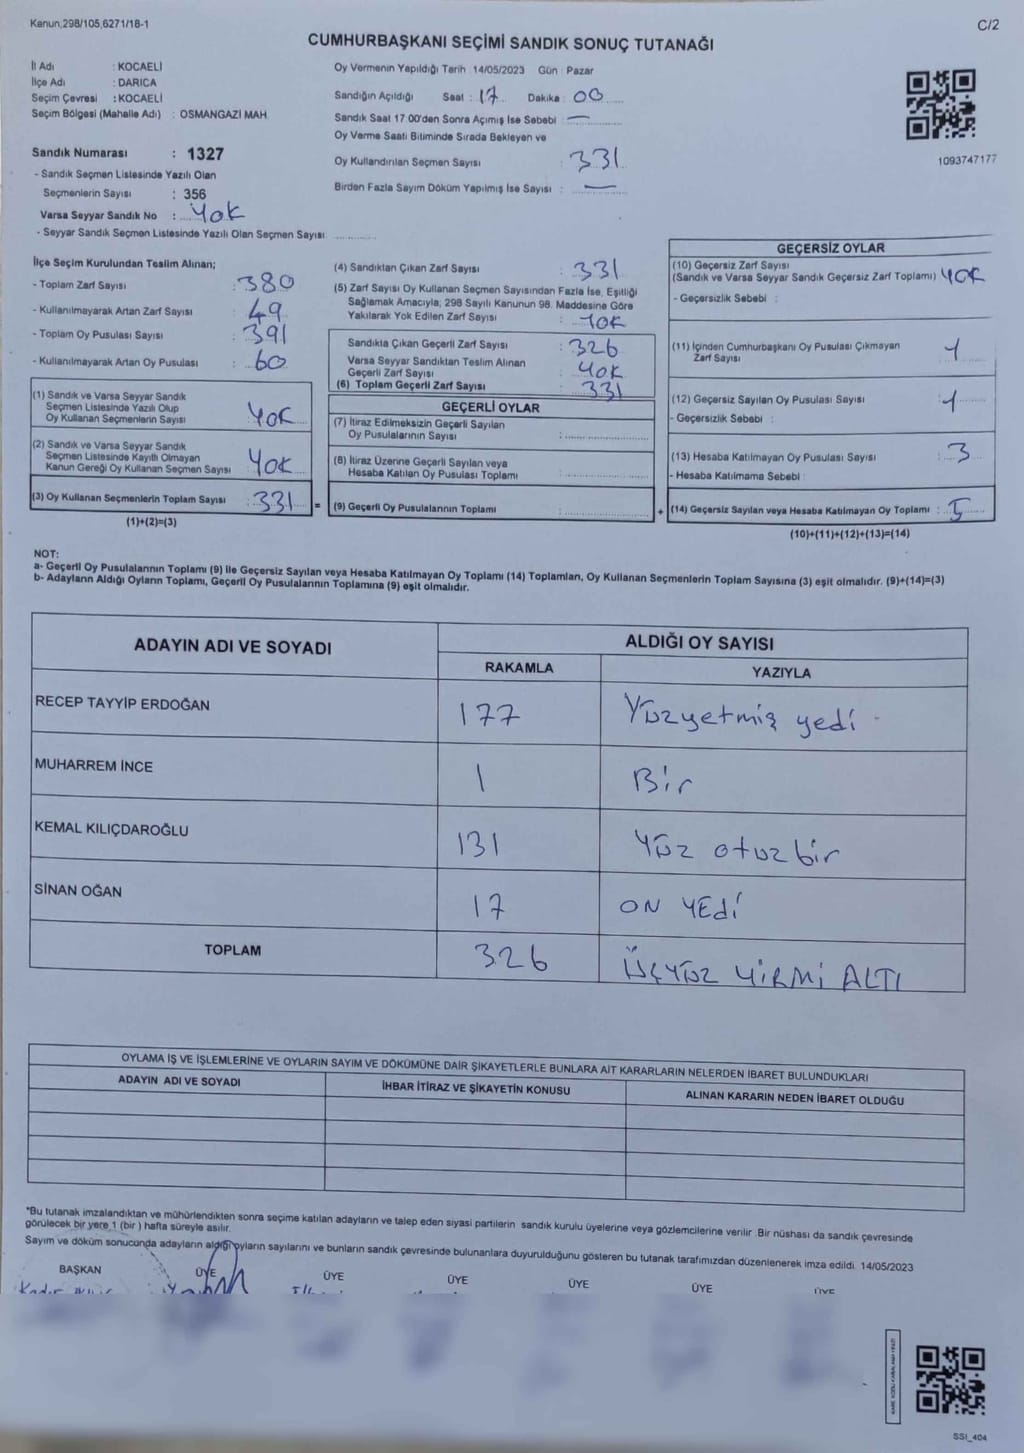 Kanun,298/105,6271/18-1
C/2
CUMHURBAŞKANI SEÇİMİ SANDIK SONUÇ TUTANAĞI
İl Adı : KOCAELİ
İlçe Adı : DARICA
Seçim Çevresi : KOCAELİ
Seçim Bölgesi (Mahalle Adı) : OSMANGAZİ MAH.
Sandık Numarası : 1327
- Sandık Seçmen Listesinde Yazılı Olan
Seçmenlerin Sayısı : 356
Varsa Seyyar Sandık No : YOK
- Seyyar Sandık Seçmen Listesinde Yazılı Olan Seçmen Sayısı
Oy Vermenin Yapıldığı Tarih : 14/05/2023 Gün : Pazar
Sandığın Açıldığı Saat : 17 Dakika : 00
Sandık Saat 17.00'den Sonra Açımış İse Sebebi : —
Oy Verme Saati Bitiminde Sırada Bekleyen ve
Oy Kullandırılan Seçmen Sayısı : 331
Birden Fazla Sayım Döküm Yapılmış İse Sayısı : —
1093747177
İlçe Seçim Kurulundan Teslim Alınan;
- Toplam Zarf Sayısı : 380
- Kullanılmayarak Artan Zarf Sayısı : 49
- Toplam Oy Pusulası Sayısı : 391
- Kullanılmayarak Artan Oy Pusulası : 60
(1) Sandık ve Varsa Seyyar Sandık
Seçmen Listesinde Yazılı Olup
Oy Kullanan Seçmenlerin Sayısı : YOK
(2) Sandık ve Varsa Seyyar Sandık
Seçmen Listesinde Kayıtlı Olmayan
Kanun Gereği Oy Kullanan Seçmen Sayısı : YOK
(3) Oy Kullanan Seçmenlerin Toplam Sayısı : 331 =
(1)+(2)=(3)
(4) Sandıktan Çıkan Zarf Sayısı : 331
(5) Zarf Sayısı Oy Kullanan Seçmen Sayısından Fazla İse, Eşitliği
Sağlamak Amacıyla, 298 Sayılı Kanunun 98. Maddesine Göre
Yakılarak Yok Edilen Zarf Sayısı : YOK
Sandıkta Çıkan Geçerli Zarf Sayısı : 326
Varsa Seyyar Sandıktan Teslim Alınan
Geçerli Zarf Sayısı : YOK
(6) Toplam Geçerli Zarf Sayısı : 331
GEÇERLİ OYLAR
(7) İtiraz Edilmeksizin Geçerli Sayılan
Oy Pusulalarının Sayısı :
(8) İtiraz Üzerine Geçerli Sayılan veya
Hesaba Katılan Oy Pusulası Toplamı :
(9) Geçerli Oy Pusulalarının Toplamı : +
GEÇERSİZ OYLAR
(10) Geçersiz Zarf Sayısı
(Sandık ve Varsa Seyyar Sandık Geçersiz Zarf Toplamı) YOK
- Geçersizlik Sebebi :
(11) İçinden Cumhurbaşkanı Oy Pusulası Çıkmayan
Zarf Sayısı : 1
(12) Geçersiz Sayılan Oy Pusulası Sayısı : 1
- Geçersizlik Sebebi :
(13) Hesaba Katılmayan Oy Pusulası Sayısı : 3
- Hesaba Katılmama Sebebi :
(14) Geçersiz Sayılan veya Hesaba Katılmayan Oy Toplamı : 5
(10)+(11)+(12)+(13)=(14)
NOT:
a- Geçerli Oy Pusulalarının Toplamı (9) ile Geçersiz Sayılan veya Hesaba Katılmayan Oy Toplamı (14) Toplamları, Oy Kullanan Seçmenlerin Toplam Sayısına (3) eşit olmalıdır. (9)+(14)=(3)
b- Adayların Aldığı Oyların Toplamı, Geçerli Oy Pusulalarının Toplamına (9) eşit olmalıdır.
ADAYIN ADI VE SOYADI
ALDIĞI OY SAYISI
RAKAMLA YAZIYLA
RECEP TAYYİP ERDOĞAN 177 Yüzyetmiş yedi
MUHARREM İNCE 1 Bir
KEMAL KILIÇDAROĞLU 131 Yüz otuz bir
SİNAN OĞAN 17 ON YEdi
TOPLAM 326 ÜÇYÜZ YİRMİ ALTI
OYLAMA İŞ VE İŞLEMLERİNE VE OYLARIN SAYIM VE DÖKÜMÜNE DAİR ŞİKAYETLERLE BUNLARA AİT KARARLARIN NELERDEN İBARET BULUNDUKLARI
ADAYIN ADI VE SOYADI İHBAR İTİRAZ VE ŞİKAYETİN KONUSU ALINAN KARARIN NEDEN İBARET OLDUĞU
*Bu tutanak imzalandıktan ve mühürlendikten sonra seçime katılan adayların ve talep eden siyasi partilerin sandık kurulu üyelerine veya gözlemcilerine verilir. Bir nüshası da sandık çevresinde
görülecek bir yere 1 (bir ) hafta süreyle asılır.
Sayım ve döküm sonucunda adayların aldığı oyların sayılarını ve bunların sandık çevresinde bulunanlara duyurulduğunu gösteren bu tutanak tarafımızdan düzenlenerek imza edildi. 14/05/2023
BAŞKAN ÜYE ÜYE ÜYE ÜYE ÜYE ÜYE
SSI_404